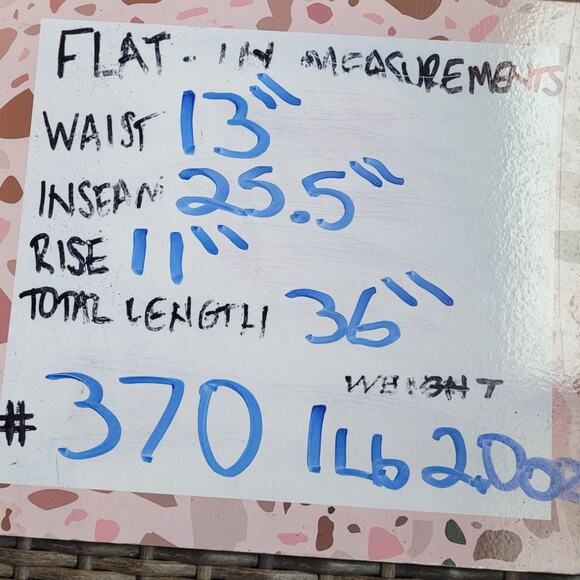 FLAT-LAY MEASUREMENTS
WAIST 13"
INSEAM 25.5"
RISE 11"
TOTAL LENGTH 36"
WEIGHT
#370 1Lb 2.0oz